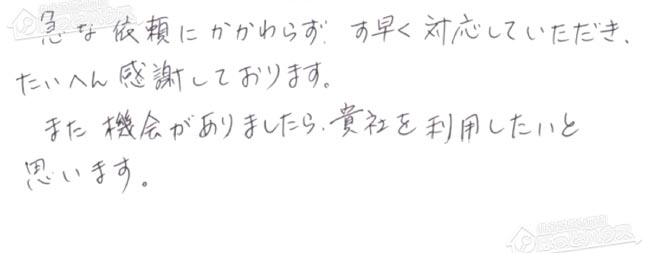 急な依頼にかかわらず、す早く対応していただき、
たいへん感謝しております。
また機会がありましたら、貴社を利用したいと
思います。